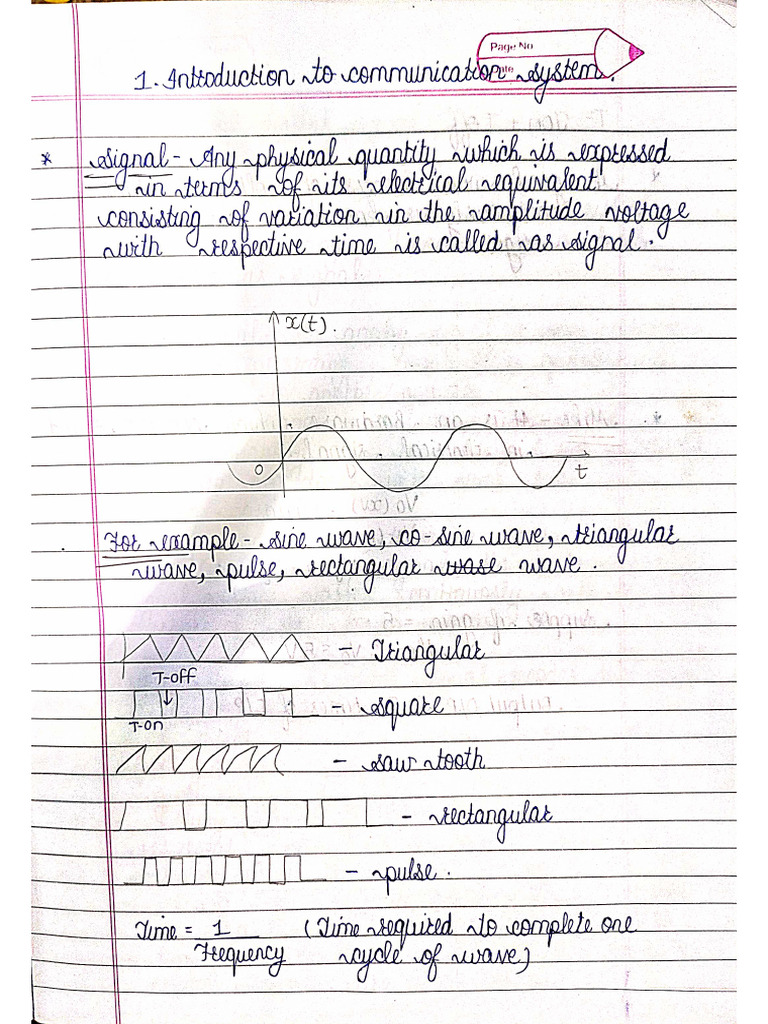 Page No
1. Introduction to communication system.
* Signal - Any physical quantity which is expressed
in terms of its electrical equivalent
consisting of variation in the amplitude voltage
with respective time is called as signal.
x(t).
0
t
For example - sine wave, co-sine wave, triangular
wave, pulse, rectangular wave.
- Triangular
T-off
- square
T-on
- saw tooth
- rectangular
- pulse.
Time = 1 (Time required to complete one
Frequency cycle of wave)